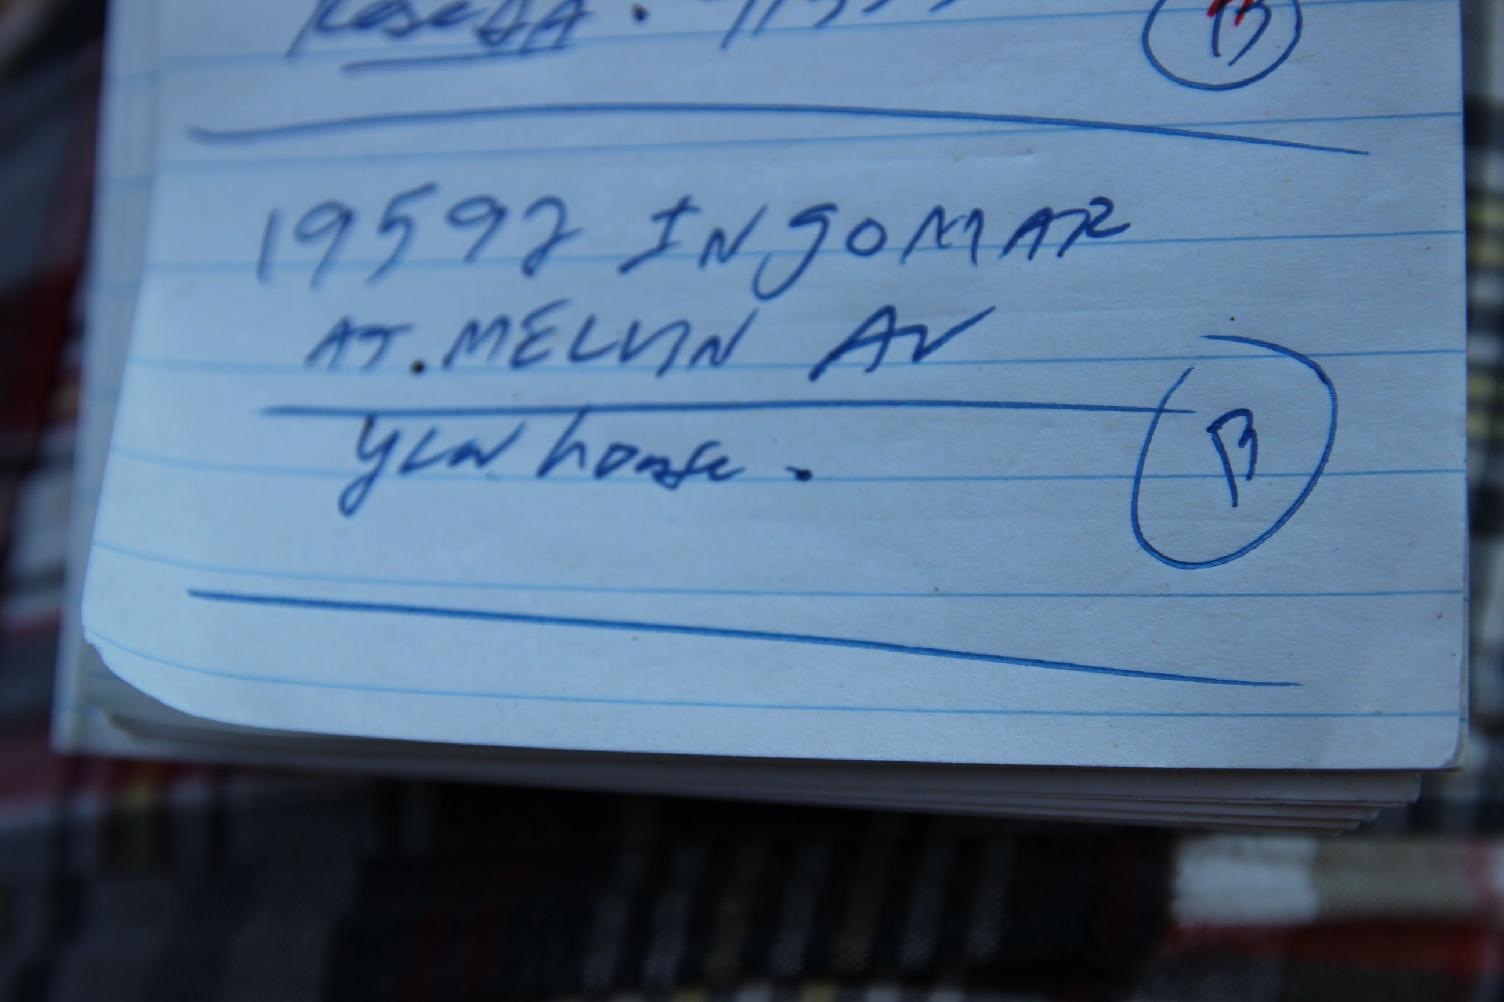 B
19592 INGOMAR
AT. MELVIN AV
YLW house.
B